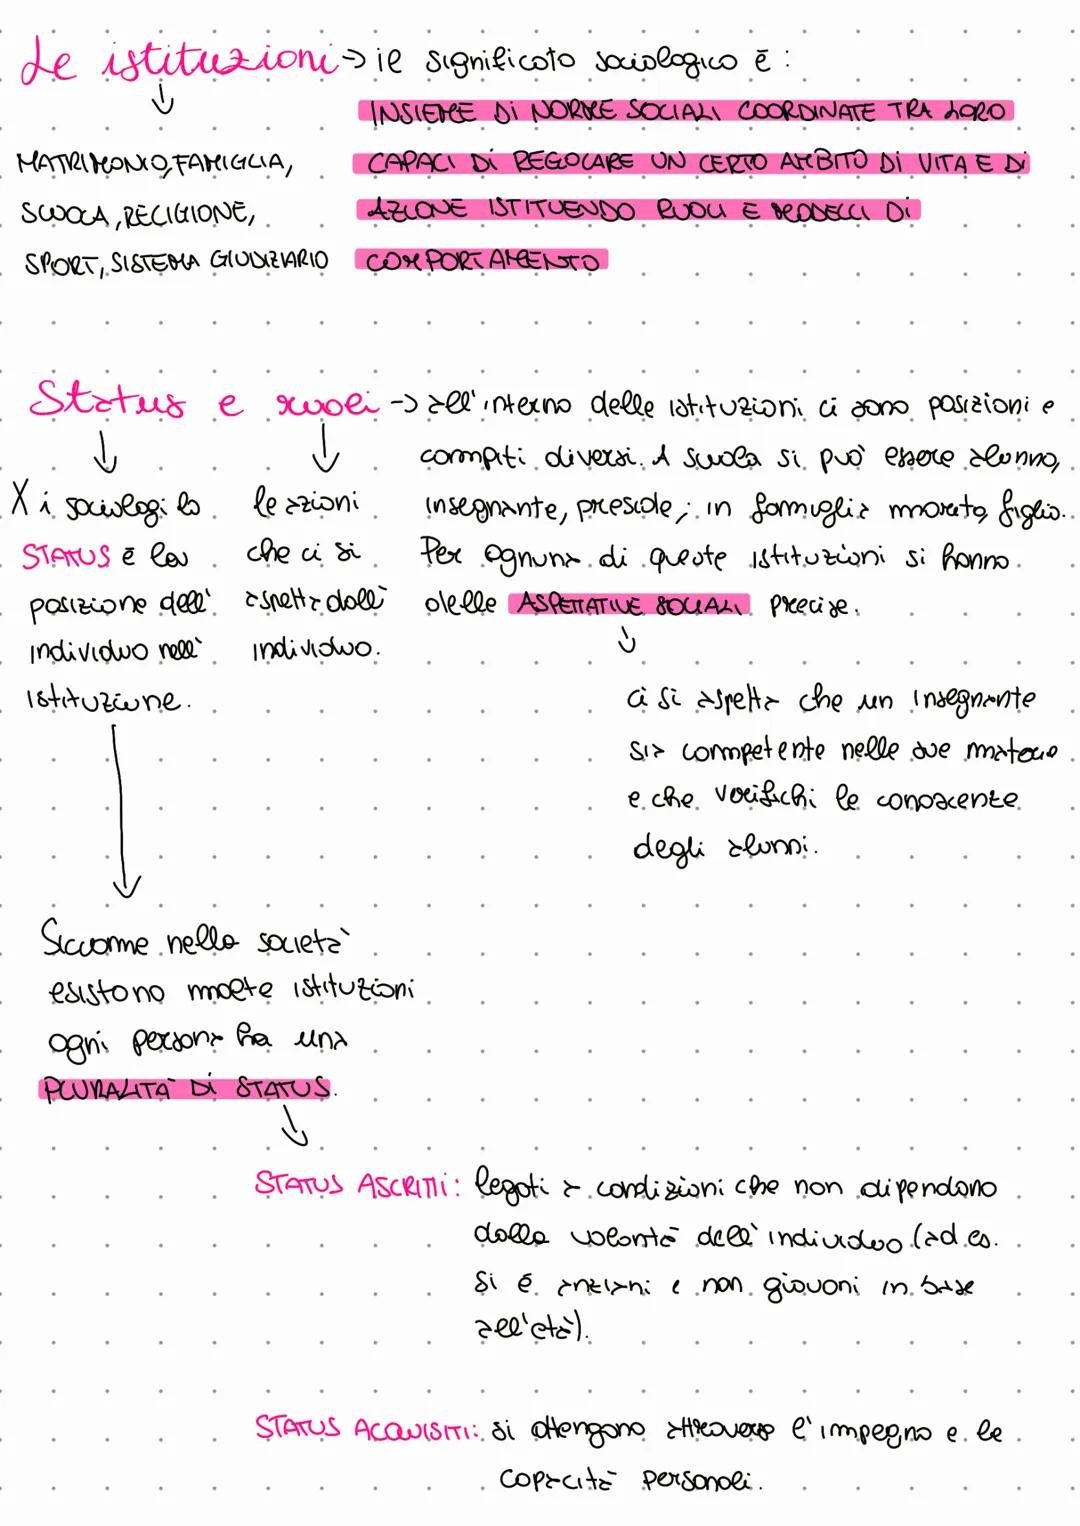 Le istituzioni → il significato sociologico è:
INSIEME DI NORME SOCIALI COORDINATE TRA LORO
CAPACI DI REGOLARE UN CERTO AMBITO DI VITA E DI
AZIONE ISTITUENDO RUOLI E MODELLI DI
COMPORTAMENTO
MATRIMONIO, FAMIGLIA,
SCUOLA, RELIGIONE,
SPORT, SISTEMA GIUDIZIARIO
Status e ruoli → all'interno delle istituzioni ci sono posizioni e
compiti diversi. A scuola si può essere alunno,
insegnante, preside; in famiglia marito, figlio.
Per ognuna di queste istituzioni si hanno
delle ASPETTATIVE SOCIALI precise.
X i sociologi lo
STATUS è la
posizione dell'
individuo nell'
istituzione.
le azioni
che ci si
aspetta dall'
individuo.
ci si aspetta che un insegnante
sia competente nelle sue materie
e che verifichi le conoscenze
degli alunni.
Siccome nella società
esistono molte istituzioni
ogni persona ha una
PLURALITÀ DI STATUS.
STATUS ASCRITTI: legati a condizioni che non dipendono
dalla volontà dell'individuo (ad es.
si è anziani e non giovani in base
all'età).
STATUS ACQUISITI: si ottengono attraverso l'impegno e le
capacità personali.